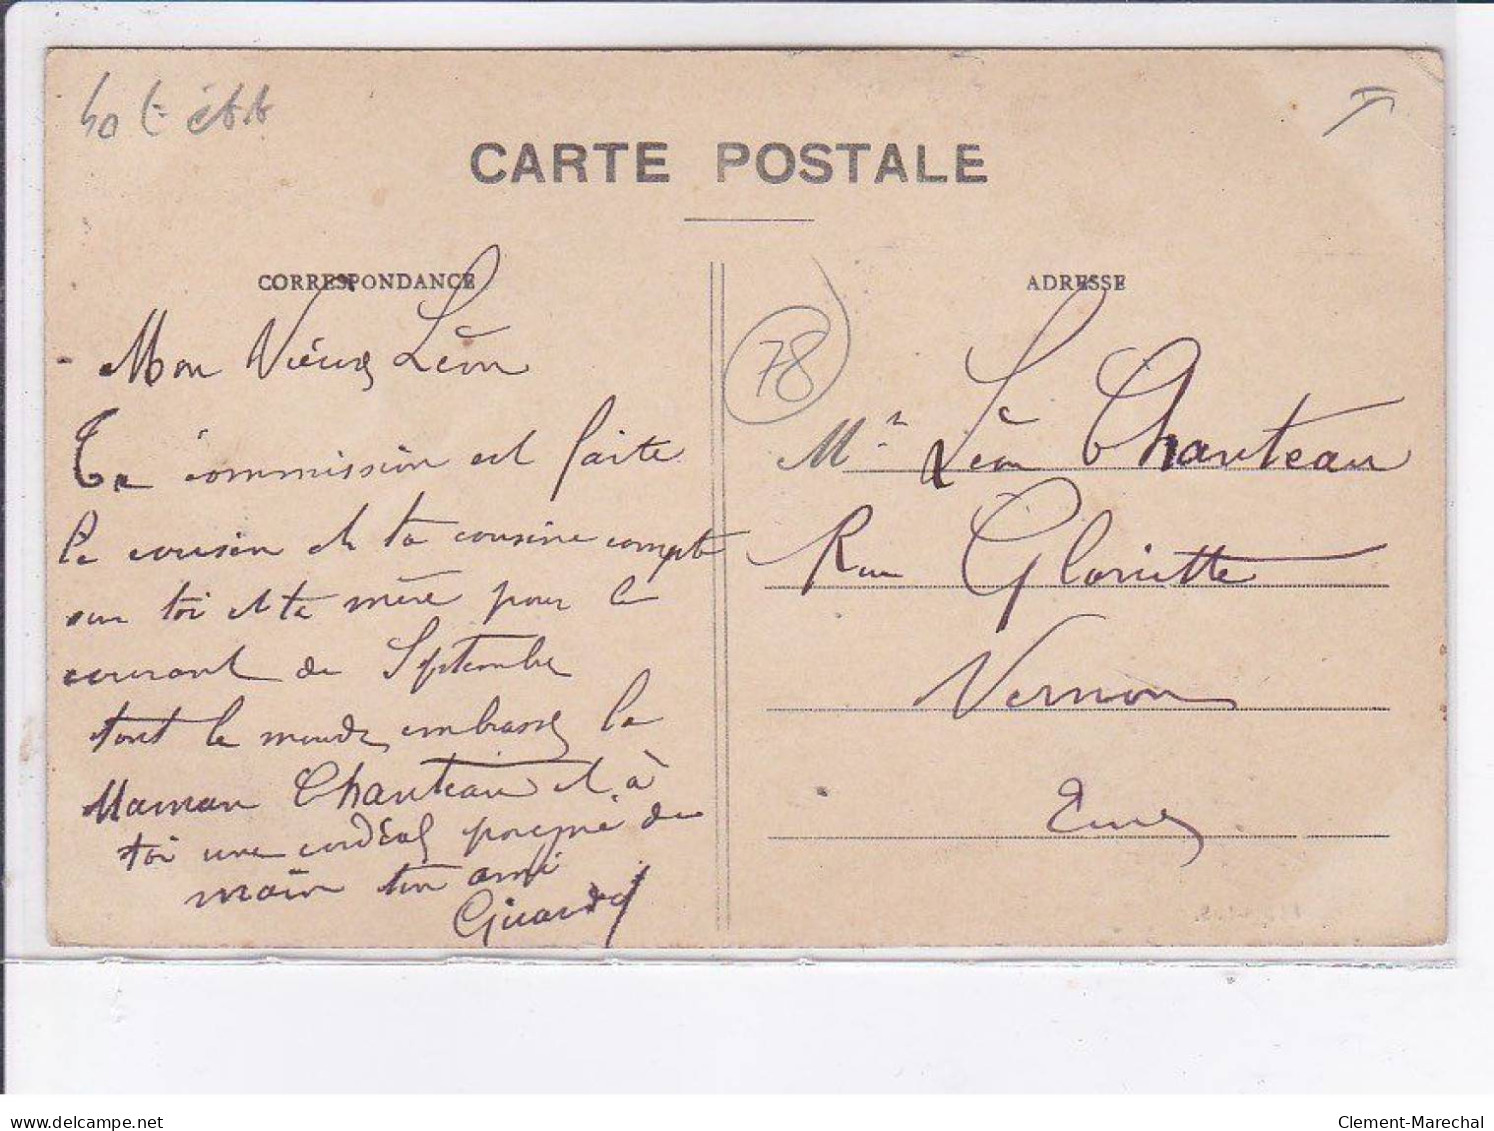 CARTE POSTALE
CORRESPONDANCE
Mon Vieux Léon
Ta commission est faite
le cousin et ta cousine compte
sur toi et ta mère pour le
courant de Septembre
tout le monde embrasse la
Maman Chanteau et à
toi une cordial poigné de
main ton ami
Girard
ADRESSE
78
Mr Léon Chanteau
Rue Gloriette
Vernon
Eure
www.delcampe.net
Clement-Marechal